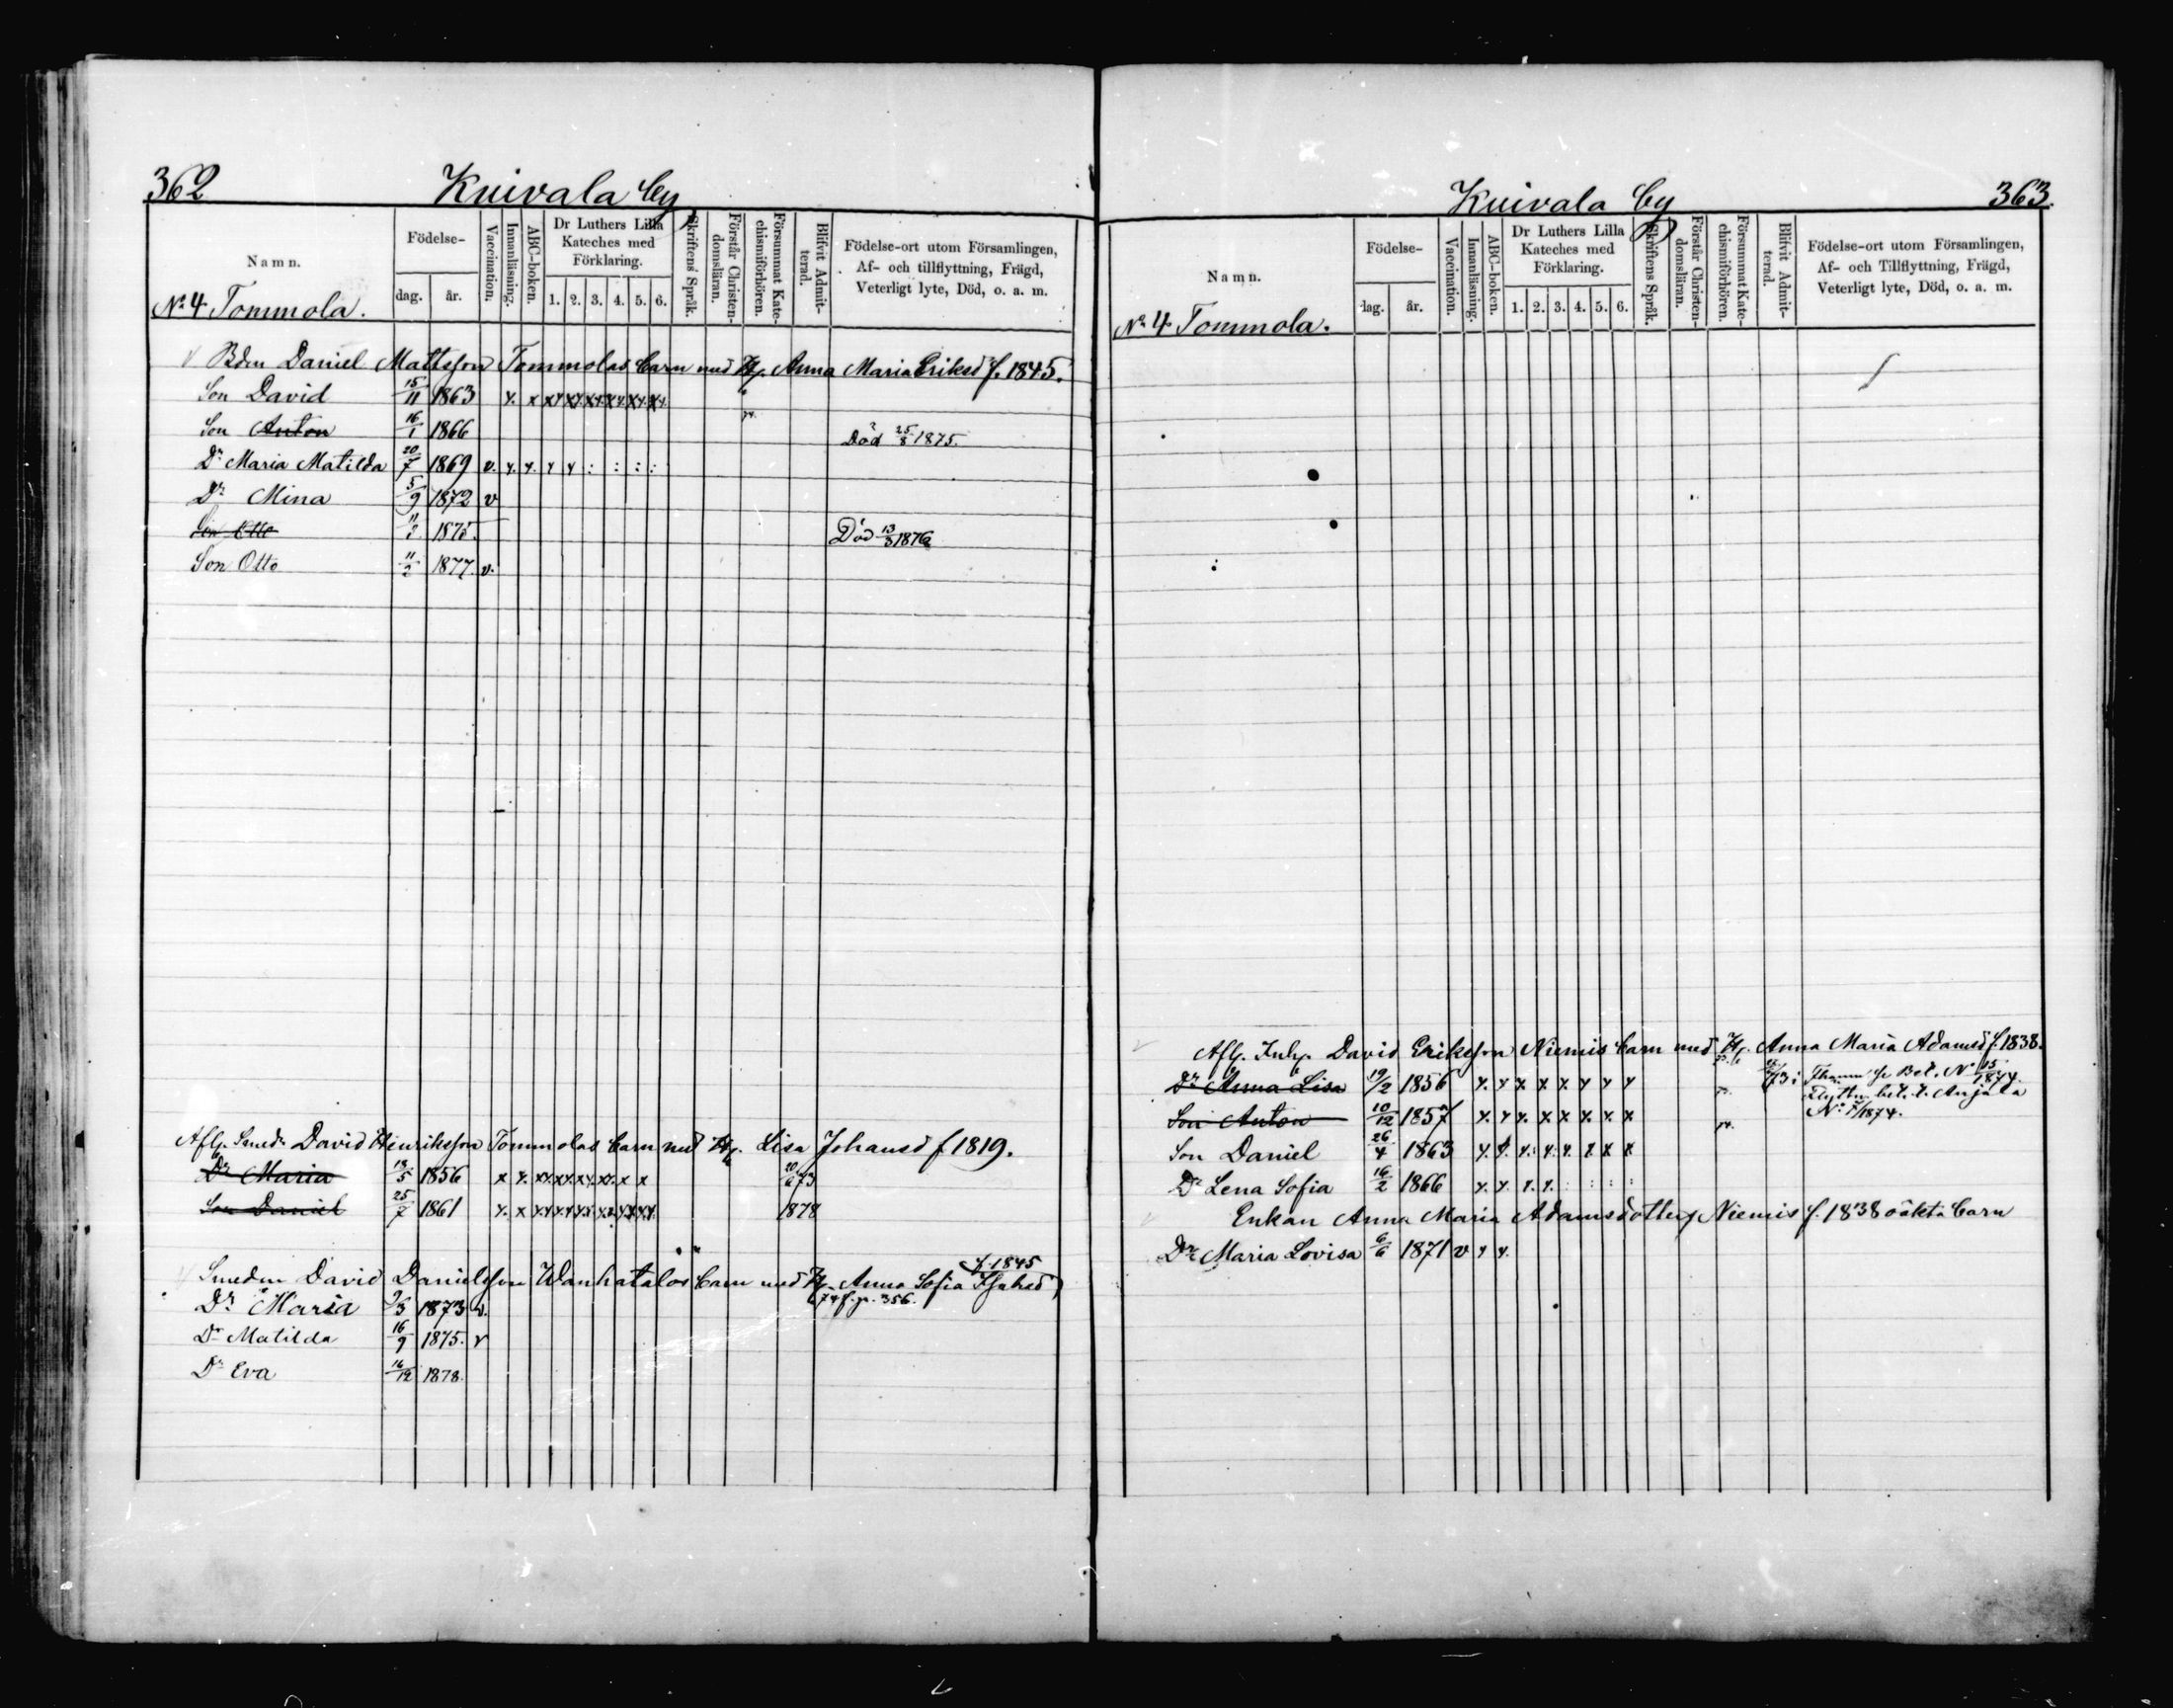 362 Kuivala by
Namn.
Födelse-
dag. år.
Vaccination.
Innanläsning.
ABC-boken.
Dr Luthers Lilla Kateches med Förklaring.
1. 2. 3. 4. 5. 6.
Skriftens Språk.
Förstår Christendomsläran.
Försummat Katechismiförhören.
Blifvit Admitterad.
Födelse-ort utom Församlingen, Af- och tillflyttning, Frägd, Veterligt lyte, Död, o. a. m.
No 4 Tommola.
Bdn Daniel Mattsson Tommolas barn med H. Anna Maria Eriksd f. 1845.
Son David 15/11 1863
Son Anton 16/1 1866 Död 25/8 1875.
Dr Maria Matilda 20/7 1869 v.
Dr Mina 5/9 1872 v
Son Otto 1875. Död 13/3 1876
Son Otto 11/2 1877. v.
Afl. Smedn David Henriksson Tommolas barn med H. Lisa Johansd f 1819.
Dr Maria 13/5 1856 20/6 73
Son Daniel 25/7 1861 1878
f. 1845
Smeden David Danielsson Wanhatalos barn med H. Anna Sofia
74 f. p. 356.
Dr Maria 9/3 1873 v.
Dr Matilda 16/9 1875. v
Dr Eva 16/12 1878.
Kuivala by 363.
Namn.
Födelse-
dag. år.
Vaccination.
Innanläsning.
ABC-boken.
Dr Luthers Lilla Kateches med Förklaring.
1. 2. 3. 4. 5. 6.
Skriftens Språk.
Förstår Christendomsläran.
Försummat Katechismiförhören.
Blifvit Admitterad.
Födelse-ort utom Församlingen, Af- och Tillflyttning, Frägd, Veterligt lyte, Död, o. a. m.
No 4 Tommola.
Afl. Inh. David Eriksson Niemis barn med H. Anna Maria Adamsd f. 1838.
Dr Anna Lisa 19/2 1856 Bet. No 15/1874.
Son Anton 10/12 1857 bet. t. Anjala
No 1874.
Son Daniel 26/4 1863
Dr Lena Sofia 16/2 1866
Enkan Anna Maria Adamsdotter Niemis f. 1838 oäkta barn
Dr Maria Lovisa 6/6 1871 v